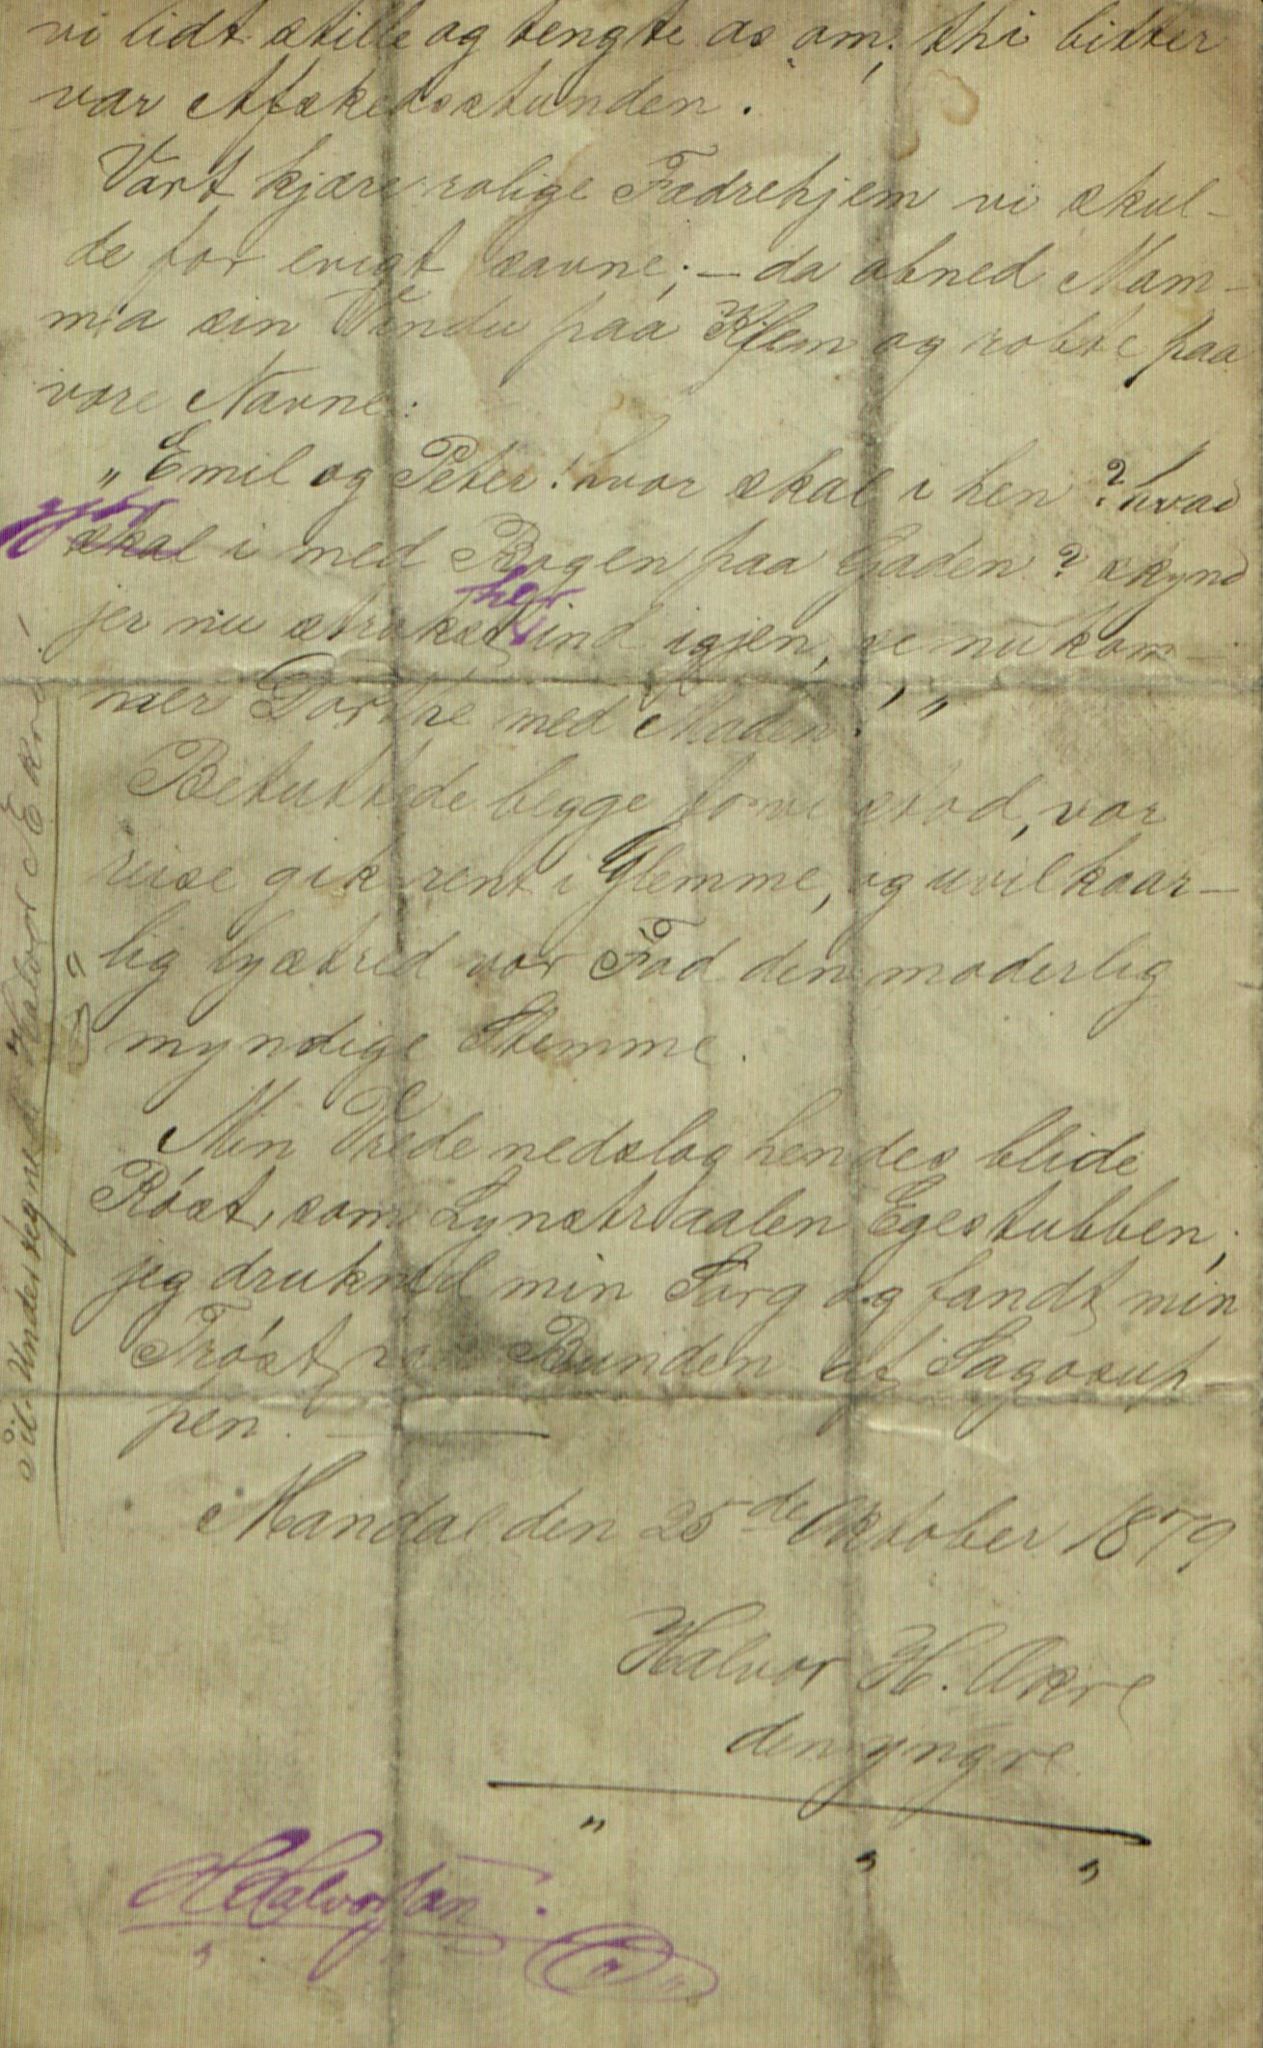 vi lidt stille og tengte os om; thi bitter
var Afskedsstunden.
Vort kjære rolige Fædrehjem vi skul-
de for evigt savne; — da abned Mam-
ma sin Vindu paa Klem og robte paa
vore Navne:
„Emil og Peter! hvor skal i hen? hvad
gjør
skal i med Bogen paa Gaden? skynd
her
jer nu straks ind igjen, se nu kom-
mer Dorthe med Maden!"
Betuttede begge to vi stod, vor
reise gik rent i Glemme, og uvilkaar-
lig lystred vor Fod den moderlig
myndige Stemme.
Min Vrede nedslog hendes blide
Røst, som Lynstraalen Egestubben,
jeg drukned min Sorg og fandt min
Trøst Bunden af Sagosup-
pen.
Mandal den 25de Oktober 1879
Halvor H. Akre
den yngre
H Halvorsen.
Til Undertegnede Halvor Ekre!